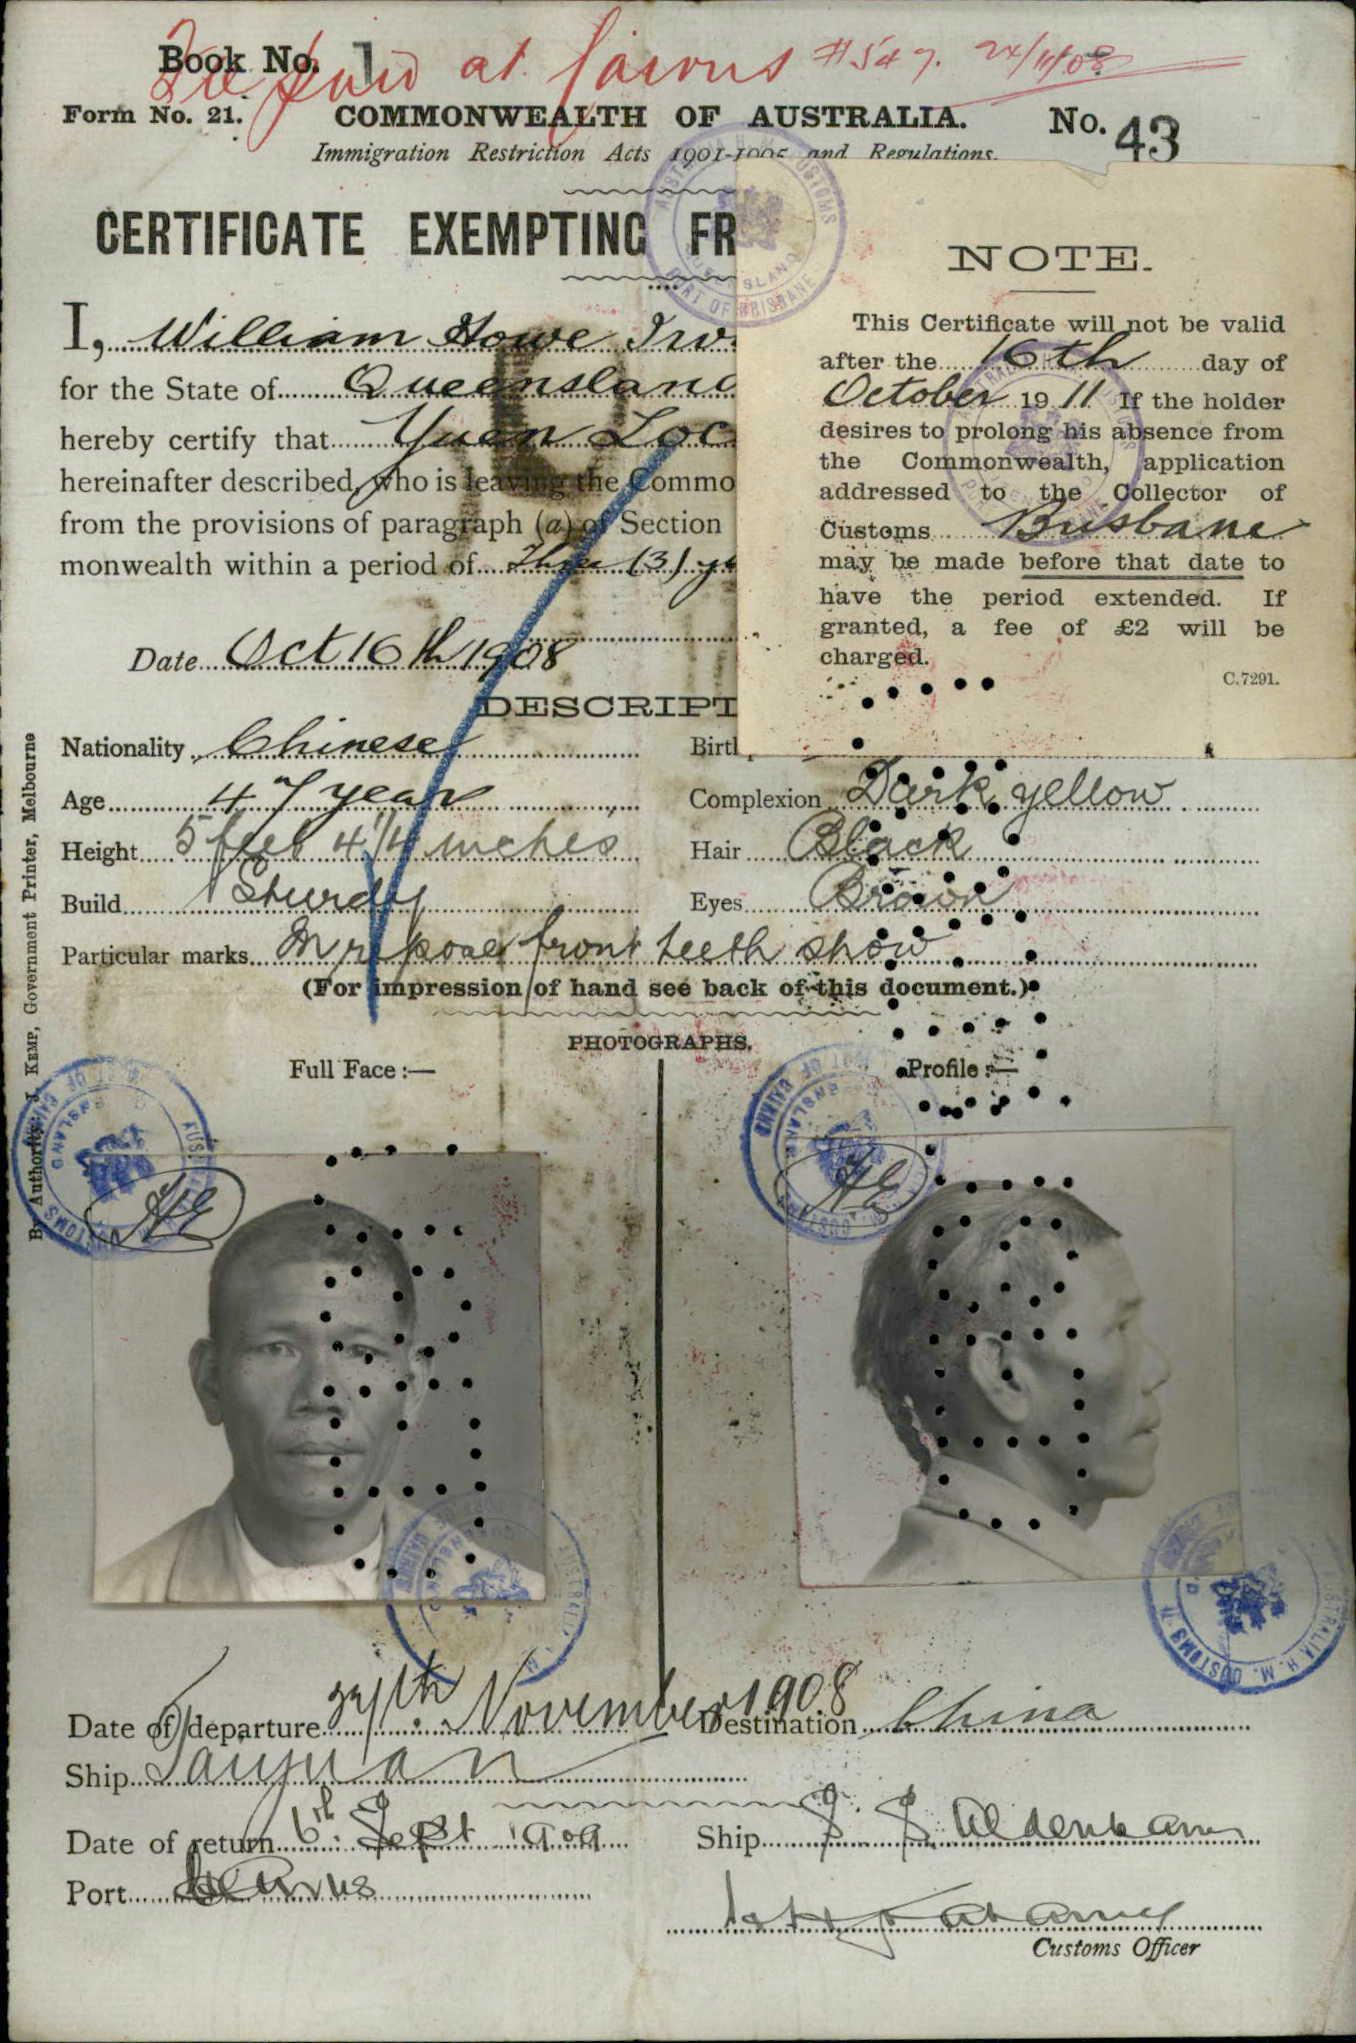 Fee paid at Cairns #547. 24/11/08
Book No. 1
Form No. 21. COMMONWEALTH OF AUSTRALIA. No. 43
Immigration Restriction Acts 1901-1905 and Regulations.
CERTIFICATE EXEMPTING FR
I, William Howe Irv
for the State of Queensland
hereby certify that Yuen Loc
hereinafter described, who is leaving the Commo
from the provisions of paragraph (a) of Section
monwealth within a period of Three (3) ye
Date Oct 16th 1908
NOTE.
This Certificate will not be valid
after the 16th day of
October 1911 If the holder
desires to prolong his absence from
the Commonwealth, application
addressed to the Collector of
Customs Brisbane
may be made before that date to
have the period extended. If
granted, a fee of £2 will be
charged.
C.7291.
DESCRIPT
Nationality Chinese Birth
Age 47 years Complexion Dark yellow
Height 5 feet 4 1/4 inches Hair Black
Build Sturdy Eyes Brown
Particular marks In repose front teeth show
(For impression of hand see back of this document.)
PHOTOGRAPHS.
Full Face :— Profile :—
By Authority: J. KEMP, Government Printer, Melbourne
Date of departure 27th November 1908 Destination China
Ship Taiyuan
Date of return 6th Sept 1909 Ship S. S. Aldenham
Port Cairns
Customs Officer